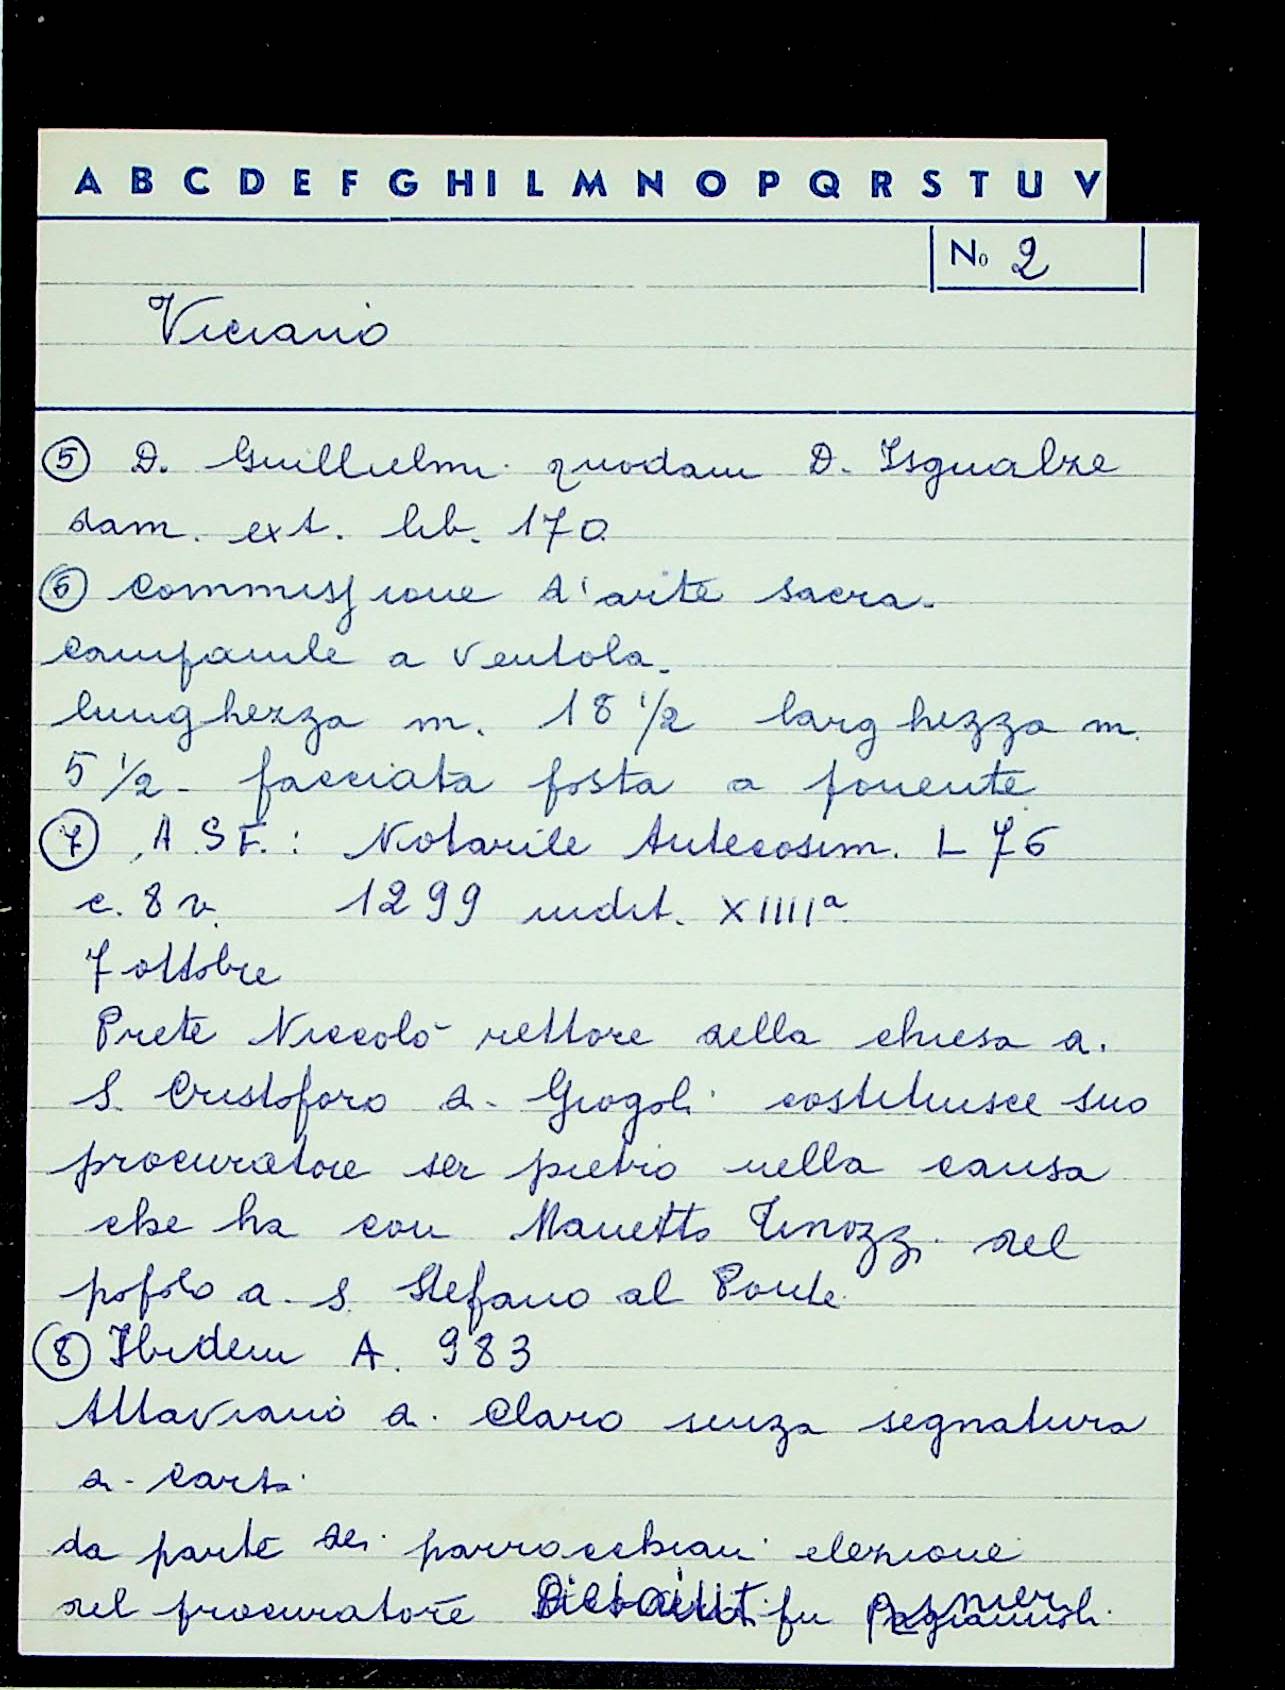 A B C D E F G H I L M N O P Q R S T U V
No 2
Viciano
5 D. Guillielmi quodam D. Isgualze
dam. ext. lib. 170
6 Commissione d'arte sacra.
Campanile a ventola.
lunghezza m. 18 1/2 larghezza m.
5 1/2 - facciata posta a ponente
7 A.S.F.: Notarile Antecosim. L 76
c. 8 v. 1299 indit. XIIIIa
7 ottobre
Prete Niccolò rettore della chiesa di
S. Cristoforo di Giogoli costituisce suo
procuratore ser pietro nella causa
che ha con Manetto Tinozzi del
popolo di S. Stefano al Ponte
8 Ibidem A. 983
Attaviano di Claro senza segnatura
di carta
da parte dei parrocchiani elezione
del procuratore fu